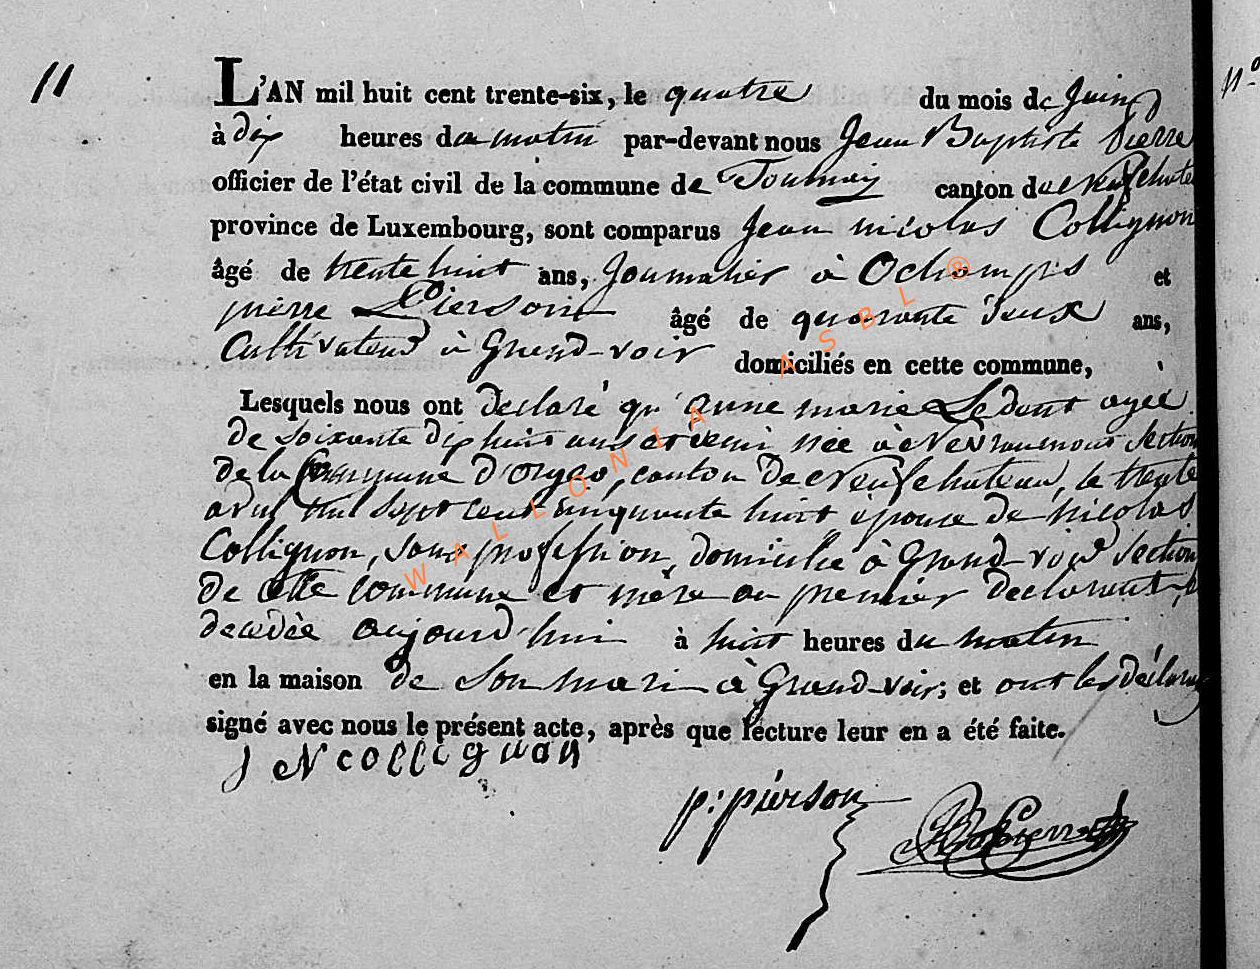 11
L'AN mil huit cent trente-six, le quatre du mois de Juin
N°
à dix heures du matin par-devant nous Jean Baptiste Pierre
officier de l'état civil de la commune de Tournay canton de Neufchate
province de Luxembourg, sont comparus Jean nicolas Collignon
âgé de trente huit ans, Journalier à Ochamps et
pierre Pierson âgé de quarante deux ans,
Cultivateur à Grand-voir domiciliés en cette commune,
Lesquels nous ont déclaré qu'anne marie Ledent agée
de soixante dix huit ans et demi née à Nevraumont section
de la Commune d'Orgeo, canton de Neufchateau, le trente
avril mil sept cent cinquante huit épouse de nicolas
Collignon, sans profession, domiciliée à Grand-voir section
de cette commune et mère au premier declarant,
decedée aujourd'hui à huit heures du matin
en la maison de son mari à Grand-voir; et ont les déclarans
signé avec nous le présent acte, après que lecture leur en a été faite.
J N collignon
p: pierson
WALLONIA ASBL ®